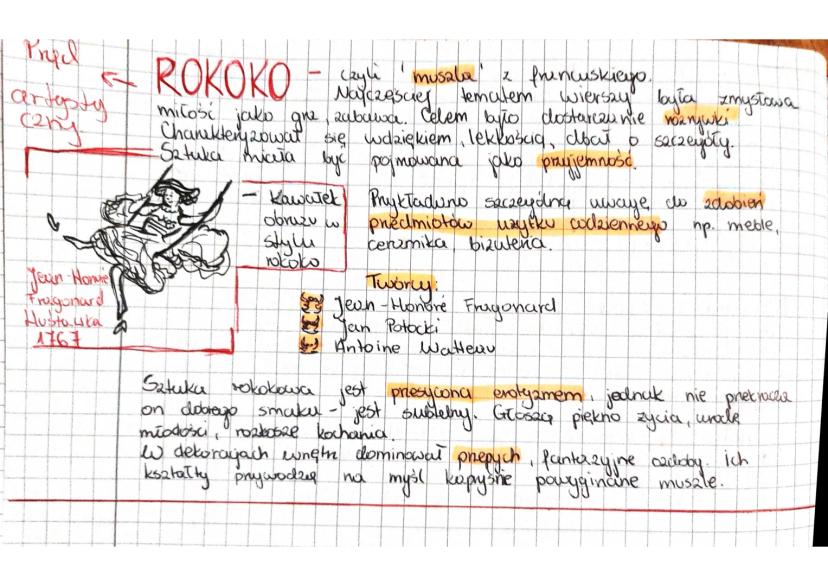 Prąd
artysty
czny.
ROKOKO - czyli "muszla" z francuskiego.
Najczęściej tematem wierszy była zmysłowa
miłość jako gra, zabawa. Celem było dostarczanie rozrywki
Charakteryzował się wdziękiem, lekkością, dbał o szczegóły.
Sztuka miała być pojmowana jako przyjemność.
- Kawałek
obrazu w
stylu
rokoko
Jean-Honoré
Fragonard
Huśtawka
1767
Przykładano szczególną uwagę do zdobień
przedmiotów użytku codziennego np. meble,
ceramika, biżuteria.
Twórcy:
Jean-Honoré Fragonard
Jan Potocki
Antoine Watteau
Sztuka rokokowa jest przesycona erotyzmem, jednak nie przekracza
on dobrego smaku - jest subtelny. Głoszą piękno życia, urodę
młodości, rozkosze kochania.
W dekoracjach wnętrz dominował przepych, fantazyjne ozdoby. ich
kształty przywodzą na myśl kapryśnie powyginane muszle.